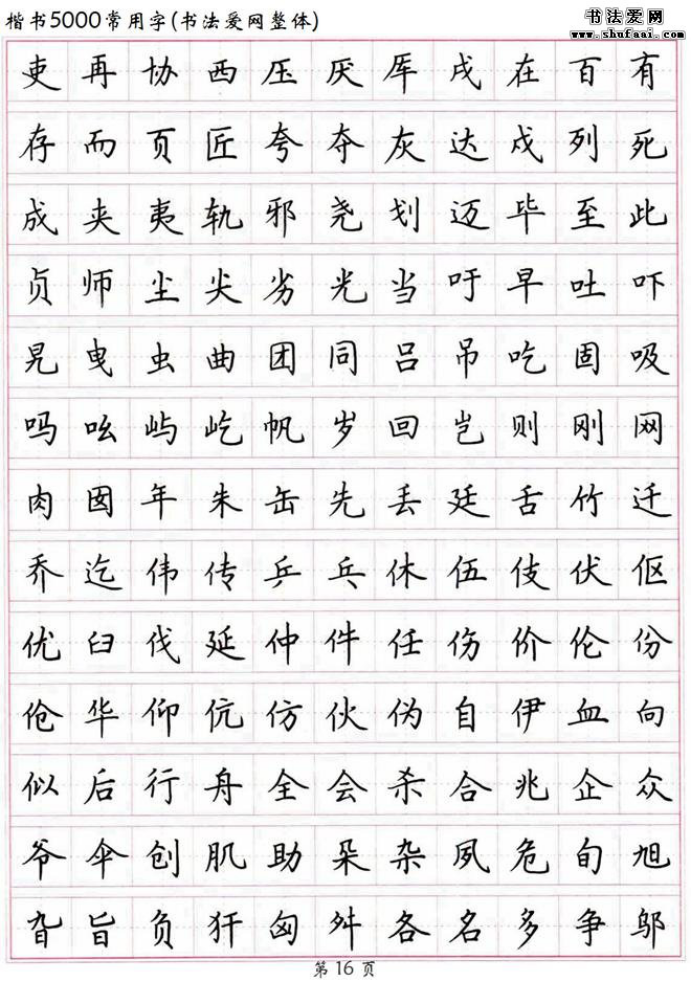 楷书5000常用字(书法爱网整体)
书法爱网
www.shufaai.com
吏再协西压厌厍戌在百有
存而页匠夸夺灰达戍列死
成夹夷轨邪尧划迈毕至此
贞师尘尖劣光当吁早吐吓
旯曳虫曲团同吕吊吃因吸
吗吆屿屹帆岁回岂则刚网
肉囡年朱缶先丢廷舌竹迁
乔迄伟传乒乓休伍伎伏伛
优臼伐延仲件任伤价伦份
伧华仰伉仿伙伪自伊血向
似后行舟全会杀合兆企众
爷伞创肌肋朵杂夙危旬旭
旮旨负犴匈舛各名多争邬
第 16 页